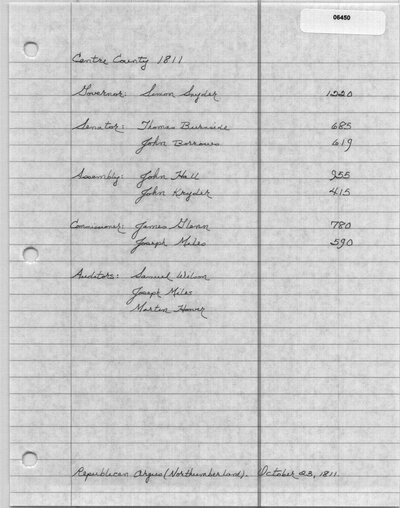 06450
Centre County 1811
Governor: Simon Snyder 1220
Senator: Thomas Burnside 685
John Barrows 619
Assembly: John Hall 955
John Kryder 415
Commissioner: James Glenn 780
Joseph Miles 590
Auditors: Samuel Wilson
Joseph Miles
Martin Hoover
Republican Argus (Northumberland). October 23, 1811.